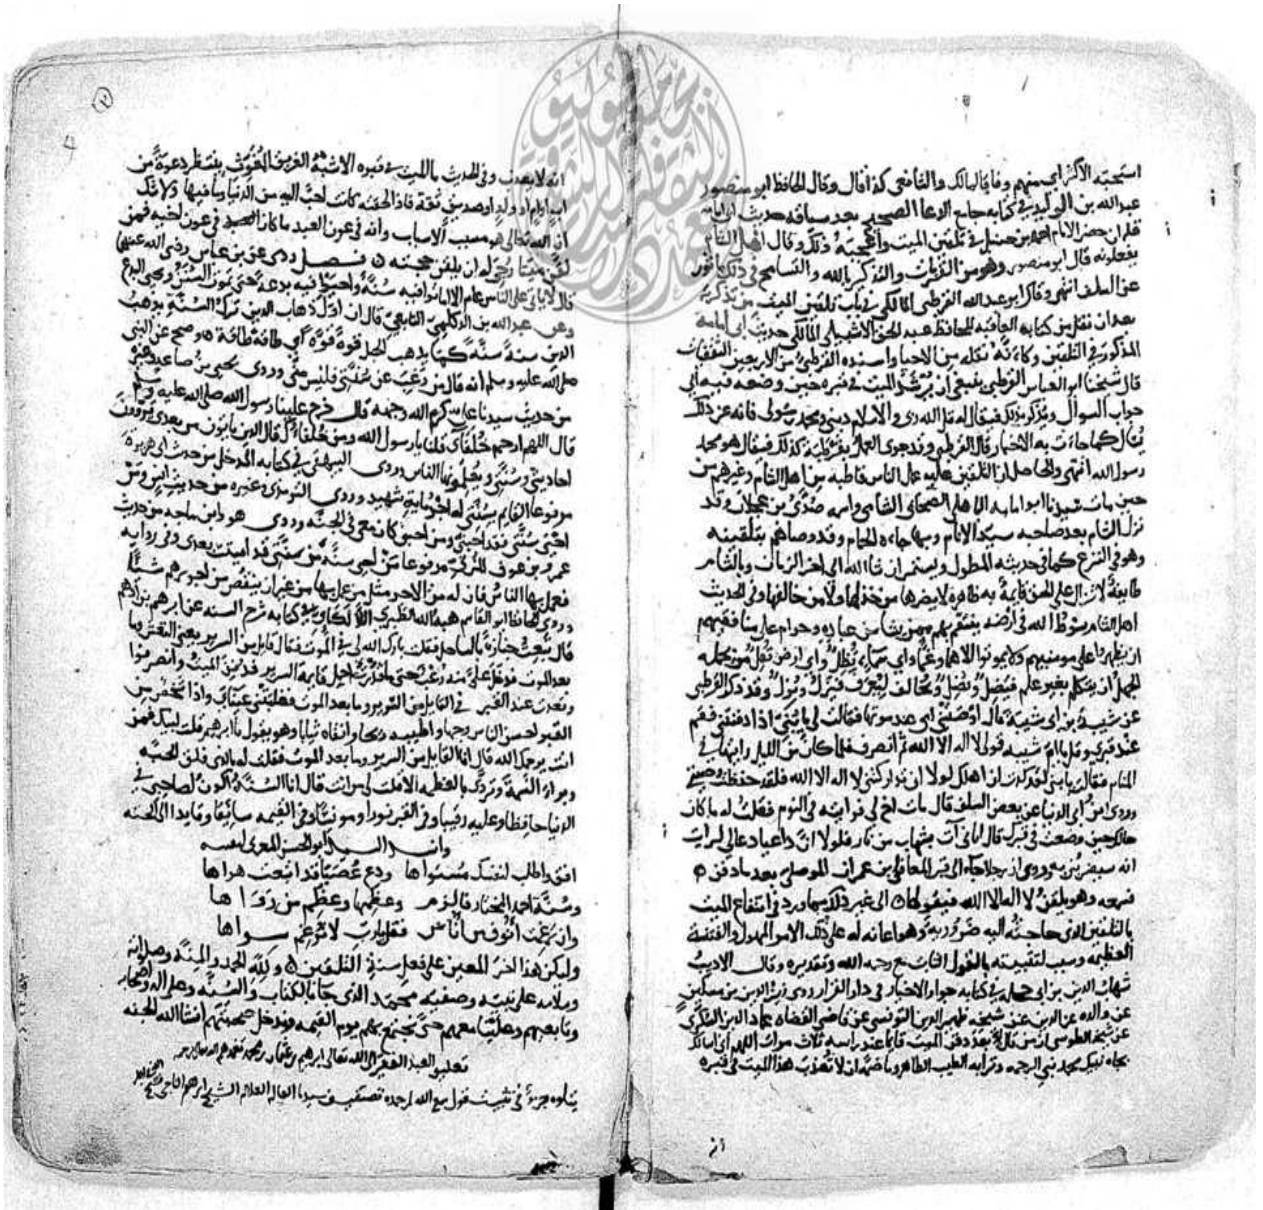 استحبه الاكثر اي منهم وفاقا لمالك والشافعي كذا قال وقال الحافظ ابو منصور
عبدالله بن الوليد في كتابه جامع الدعا الصحيح بعد سياقه حديث ابي امامة
الامام احمد بن حنبل في تلقين الميت واعجبه ذلك وقال اهل الشام
يفعلونه قال ابو منصور وهو من والتذكير بالله والتسامح في ذلك ماثور
عن السلف انتهى وقال ابو عبد الله القرطبي المالكي في باب تلقين الميت
بعد ان نقل من كتابه العاقبة للحافظ عبد الحق الاشبيلي المالكي حديث ابي امامة
المذكور في التلقين وكانه نقله من الاحيا واسنده القرطبي من الاربعين الثقفيات
قال شيخنا ابو العباس القرطبي ينبغي ان يرشد الميت في قبره حين وضعه فيه الى
جواب السؤال ويذكر بذلك فيقال له قل الله ربي والاسلام ديني ومحمد رسولي فانه عن ذلك
يسال كما جاءت به الاخبار قال القرطبي وقد جرى العمل بقرطبة كذلك فيقال هو محمد
رسول الله انتهى والحاصل ان التلقين عليه عمل الناس قاطبة من اهل الشام وغيرهم من
حين مات سيدنا ابو امامة الباهلي الصحابي الشامي واسمه صدي بن عجلان وقد
نزل الشام بعد صاحبه سيد الانام وبها جاءه الحمام وقد وصاهم بتلقينه
وهو في النزع كما في حديثه المطول ويستمر ان شا الله الى اخر الزمان وبالشام
طايفة لا تزال على الحق قايمة به ظاهرة لا يضرها من خذلها ولا من خالفها وفي الحديث
اهل الشام سوط الله في ارضه ينتقم بهم ممن يشا من عباده وحرام على منافقيهم
ان يظهروا على مومنيهم ولا يموتوا الا هما وغما واي سماء تظل واي ارض تقل من يحمله
الجهل ان يتكلم بغير علم فيضل ويضل ويخالف وقد ذكر القرطبي
عن شيبة بن ابي شيبة قال اوصتني امي عند موتها فقالت لي يا بني اذا دفنتني فقم
عند قبري وقل يا ام شيبة قولي لا اله الا الله ثم انصرف فلما كان من الليل رايتها في
المنام فقالت يا بني لقد كدت ان اهلك لولا ان تداركتني لا اله الا الله فلقد حفظت وصيتي
وروى ابن ابي الدنيا عن بعض السلف قال مات اخ لي فرايته في النوم فقلت له ما كان
حالك حين وضعت في قبرك قال اتاني آت بشهاب من نار فلولا ان داعيا دعا لي لرايت
انه سيضربني به وروى ان رجلا جاء الى قبر المعافى بن عمران الموصلي بعد ما دفن
فسمعه وهو يلقن لا اله الا الله فيقولها الى غير ذلك مما ورد في انتفاع الميت
بالتلقين الذي حاجته اليه ضرورية وهو اعانة له على ذلك الامر المهول والفتنة
العظيمة وسبب لتثبيته بالقول الثابت مع رحمة الله وتقديره وقال الاديب
شهاب الدين بن ابي حجلة في كتابه جوار الاخيار في دار القرار روى زين الدين بن
عن والده عز الدين عن شيخه ظهير الدين التونسي عن قاضي القضاة عماد الدين
عن شيخه الطوسي ان من قال بعد دفن الميت قايما عند راسه ثلاث مرات اللهم اني اسالك
بجاه نبيك محمد نبي الرحمة الطيب الطاهر ان لا تعذب هذا الميت في قبره
انه لا يعذب وفي الحديث ما الميت في قبره الا شبه الغريق المغوث ينتظر دعوة من
اب او ام او ولد او صديق ثقة فاذا لحقته كانت احب اليه من الدنيا وما فيها ولا شك
ان الله تعالى هو مسبب الاسباب وانه في عون العبد ما كان العبد في عون اخيه فمن
لقن ميتا رجي له ان يلقن حجته فصل روي عن بن عباس رضي الله عنهما
قال لا ياتي على الناس عام الا اماتوا فيه سنة واحيوا فيه بدعة حتى تموت السنن وتحيى البدع
وعن عبدالله بن الديلمي التابعي قال ان اول ذهاب الدين ترك السنة يذهب
الدين سنة سنة كما يذهب الحبل قوة قوة اي طاقة طاقة وصح عن النبي
صلى الله عليه وسلم انه قال من رغب عن سنتي فليس مني وروى يحيى بن صاعد
من حديث سيدنا علي كرم الله وجهه قال خرج علينا رسول الله صلى الله عليه
قال اللهم ارحم خلفاي قلنا يا رسول الله ومن خلفاؤك قال الذين ياتون من بعدي يروون
احاديثي وسنتي ويعلمونها الناس وروى البيهقي في كتابه المدخل من حديث ابي هريرة
مرفوعا القايم بسنتي له اجر ماية شهيد وروى الترمذي وغيره من حديث انس ومن
احيى سنتي فقد احبني ومن احبني كان معي في الجنة وروى هو وابن ماجه من حديث
عمرو بن عوف المزني مرفوعا من احيى سنة من سنتي قد اميتت بعدي وفي رواية
فعمل بها الناس فان له من الاجر مثل من عمل بها من غير ان ينقص من اجورهم شيئا
وروى الحافظ ابو القاسم هبة الله الطبري اللالكاوي في كتابه شرح السنه عن ابرهيم بن ادهم
قال تبعت جنازة بالساحل فقلت بارك الله لي في الموت فقال قايل من السرير يعني النعش وما
بعد الموت فدخل علي منه رعب حتى ما قدرت احمل قايمة السرير فدفن الميت وانصرفوا
وقعدت عند القبر في القايل من السرير وما بعد الموت فغلبتني عيناي واذا شخص من
القبر احسن الناس وجها واطيبه ريحا وانقاه ثيابا وهو يقول يا ابرهيم قلت لبيك فمن
انت يرحمك الله قال انا القايل من السرير وما بعد الموت فقلت له بالذي فلق الحبة
وبرا النسمة وتردى بالعظمة الا قلت لي من انت قال انا السنة اكون لصاحبي في
الدنيا حافظا وعليه رقيبا وفي القبر نورا ومونسا وفي القيمة سايقا وقايدا الى الجنه
وانشد السيد ابو الحسن المغربي لنفسه
افق واطلب لنفسك مستواها ودع غصبا قد اتبعت هواها
وسنة احمد المختار فالزم وعظمها وعظم من رواها
وان رغمت انوف من اناس فقل يارب لا ترغم سواها
وليكن هذا اخر المعين على فعل سنة التلقين ولله الحمد والمنة وصلواته
وسلامه على نبيه وصفيه محمد الذي جانا بالكتاب والسنة وعلى اله واصحابه
وتابعيهم وعلينا معهم حتى نجتمع بهم يوم القيمة وندخل صحبتهم انشا الله الجنه
تعليق العبد الفقير الى الله تعالى ابرهيم بن عثمان بن محمد
يتلوه جزء في تثبيت قول سمع الله لمن حمده تصنيف سيدنا العالم العلامه الشيخ ابرهيم الناجي